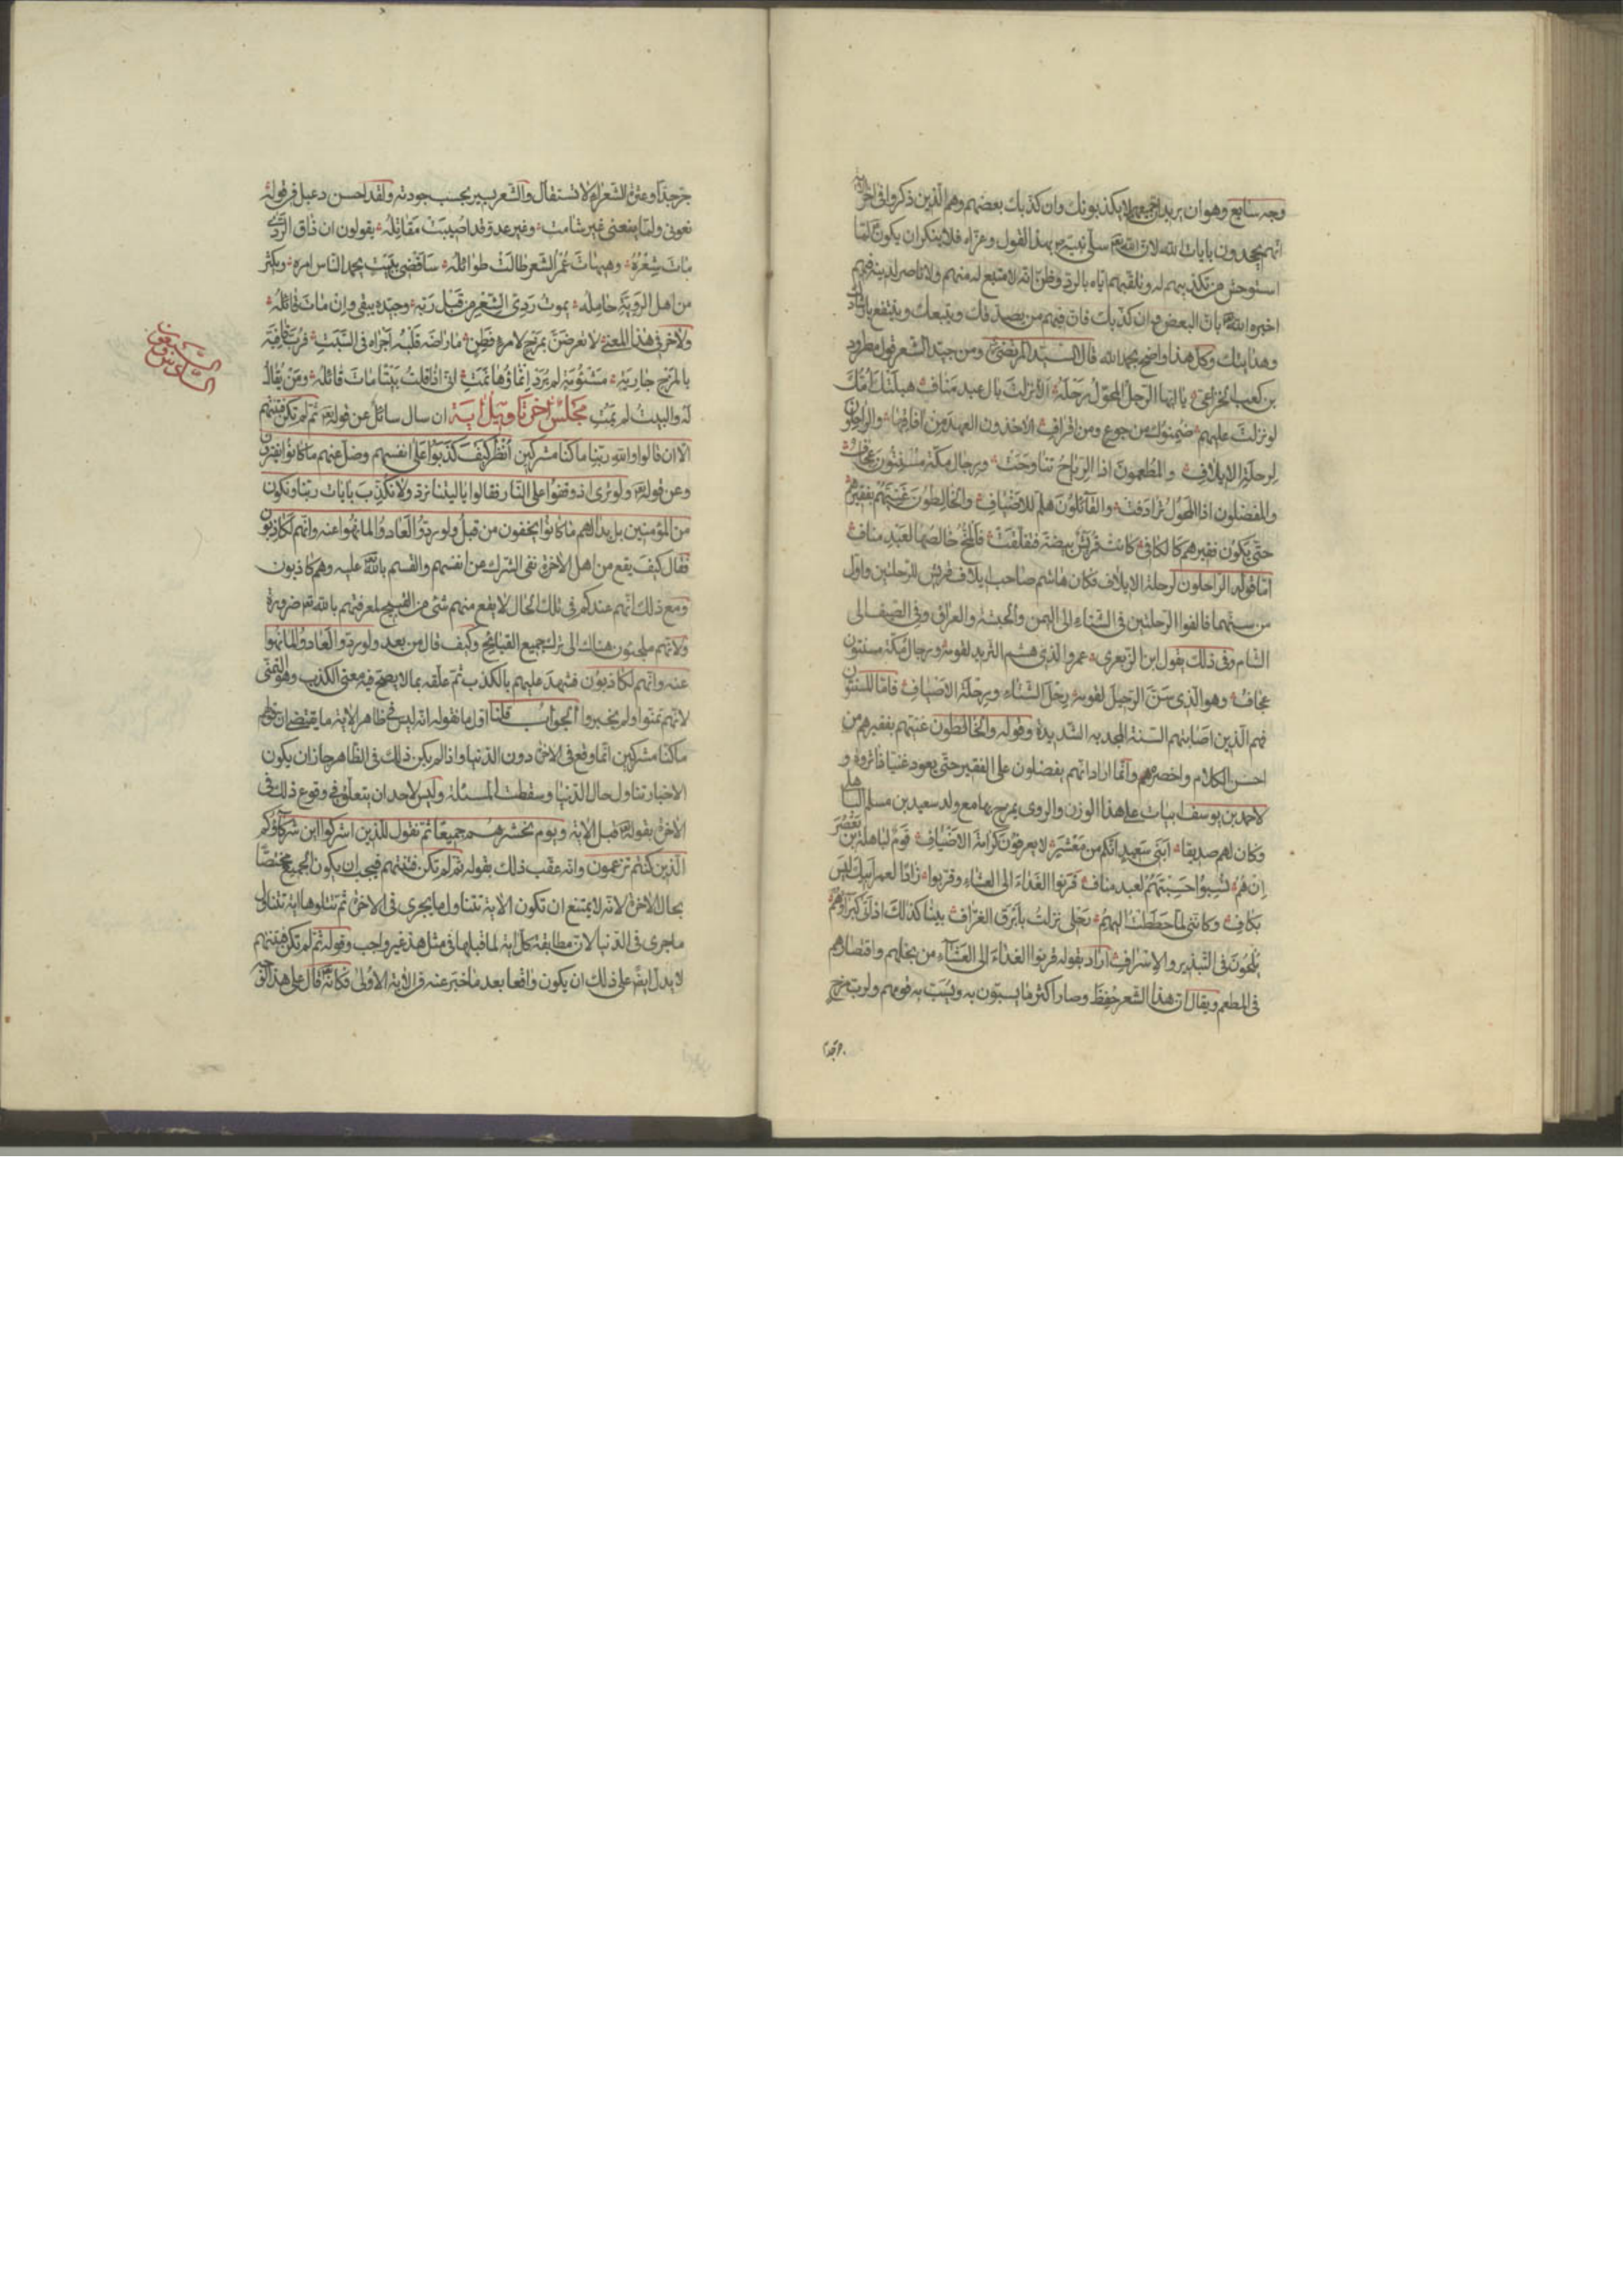 وجه سابع وهو ان يريد جميعهم لا يكذبونك وان كذبك بعضهم وهم الذين ذكروا في اخر الاية
انهم يجحدون بايات الله لان الله تع سلى نبيه بهذا القول وعزاه فلا ينكر ان يكون ع لما
استوحش من تكذيبهم له وتلقيهم اياه بالرد وظن انه لا متبع له منهم ولا ناصر لدينه فيهم
اخبره الله تع بان البعض وان كذبك فان فيهم من يصدقك ويتبعك وينتفع بارشادك
وهدايتك وكل هذا واضح بحمد الله قال السيد المرتضى ومن جيد الشعر قول مطرود
بن كعب الخزاعي يا ايها الرجل المحول رحله الا نزلت بال عبد مناف هبلتك امك
لو نزلت عليهم ضمنوك من جوع ومن اقراف الاخذون العهد من افاقها والراحلون
لرحلة الايلاف والمطعمون اذا الرياح تناوحت ورجال مكة مسنتون عجاف
والمفضلون اذا المحول ترادفت والقائلون هلم للاضياف والخالطون غنيهم بفقيرهم
حتى يكون فقيرهم كالكافي كانت قريش بيضة فتفلقت فالمخ خالصها لعبد مناف
اما قوله الراحلون لرحلة الايلاف فكان هاشم صاحب ايلاف قريش للرحلتين واول
من سنهما فالفوا الرحلتين في الشتاء الى اليمن والحبشة والعراق وفي الصيف الى
الشام وفي ذلك يقول ابن الزبعرى عمرو الذي هشم الثريد لقومه ورجال مكة مسنتون
عجاف وهو الذي سن الرحيل لقومه رحل الشتاء ورحلة الاصياف فاما المسنتون
فهم الذين اصابتهم السنة المجدبه الشديدة وقوله والخالطون غنيهم بفقيرهم من
احسن الكلام واخصره وانما اراد انهم يفضلون على الفقير حتى يعود غنيا ذا ثروة و
لاحمد بن يوسف ابيات على هذا الوزن والروي يمزح بها مع ولد سعيد بن مسلم الباهلي
وكان لهم صديقا ابني سعيد انكم من معشر لا يعرفون كرامة الاضياف قوم لباهلة بن يعصر
ان هم نسبوا حسبتهم لعبد مناف قرنوا الغداء الى العشاء وقربوا زادا لعمر ابيك ليس
بكاف وكانني لما حططت اليهم رحلي نزلت بابرق العزاف بينا كذلك اذ اتى كبراؤهم
يلحون في التبذير والاسراف اراد بقوله قرنوا الغداء الى العشاء من بخلهم واقتصادهم
في المطعم ويقال ان هذا الشعر حفظ وصار اكثر ما يسبون به ويسب به قومهم ولرب مزح
جر جدا وعثرة الشعراء لا تستقال والشعر يسير بحسب جودته ولقد احسن دعبل في قوله
نعوني ولما ينعني غير شامت وغير عدو قد اصيبت مقاتله يقولون ان ذاق الردى
مات شعره وهيهات عمر الشعر طالت طوائله ساقضي ببيت يحمد الناس امره ويكثر
من اهل الروية حامله يموت ردي الشعر من قبل ربه وجيده يبقى وان مات قائله
ولاخر في هذا المعنى لا تعرضن بمزح لامرء فطن ما راضه قلبه اجراه في الشبت فرب قافية
بالمزح جارية مشئومة لم يرد انماؤها نمت اني اذا قلت بيتا مات قائله ومن يقال
له والبيت لم يمت مجلس اخر تاويل اية ان سال سائل عن قوله تع ثم لم تكن فتنتهم
الا ان قالوا والله ربنا ما كنا مشركين انظر كيف كذبوا على انفسهم وضل عنهم ما كانوا يفترون
وعن قوله تع ولو ترى اذ وقفوا على النار فقالوا يا ليتنا نرد ولا نكذب بايات ربنا ونكون
من المؤمنين بل بدا لهم ما كانوا يخفون من قبل ولو ردوا لعادوا لما نهوا عنه وانهم لكاذبون
فقال كيف يقع من اهل الاخرة نفي الشرك عن انفسهم والقسم بالله تع عليه وهم كاذبون
ومع ذلك انهم عندكم في تلك الحال لا يقع منهم شئ من القبيح لمعرفتهم بالله تع ضرورة
ولانهم ملجئون هناك الى ترك جميع القبايح وكيف قال من بعد ولو ردوا لعادوا لما نهوا
عنه وانهم لكاذبون فشهد عليهم بالكذب ثم علقه بما لا يصح فيه معنى الكذب وهو التمني
لانهم تمنوا ولم يخبروا الجواب قلنا اول ما نقوله انه ليس في ظاهر الاية ما يقتضي ان قولهم
ما كنا مشركين انما وقع في الاخرة دون الدنيا واذا لم يكن ذلك في الظاهر جاز ان يكون
الاخبار تناول حال الدنيا وسقطت المسئلة وليس لاحد ان يتعلق في وقوع ذلك في
الاخرة بقوله تع قبل الاية ويوم نحشرهم جميعا ثم نقول للذين اشركوا اين شركاؤكم
الذين كنتم تزعمون وانه عقب ذلك بقوله ثم لم تكن فتنتهم فيجب ان يكون الجميع مختصا
بحال الاخرة لانه لا يمتنع ان تكون الاية تتناول ما يجري في الاخرة ثم تتلوها اية تتناول
ما جرى في الدنيا لان مطابقة كل اية لما قبلها في مثل هذا غير واجب وقوله ثم لم تكن فتنتهم
لا يدل ايضا على ذلك ان يكون واقعا بعد ما خبر عنه في الاية الاولى فكانه تع قال على هذا الوجه